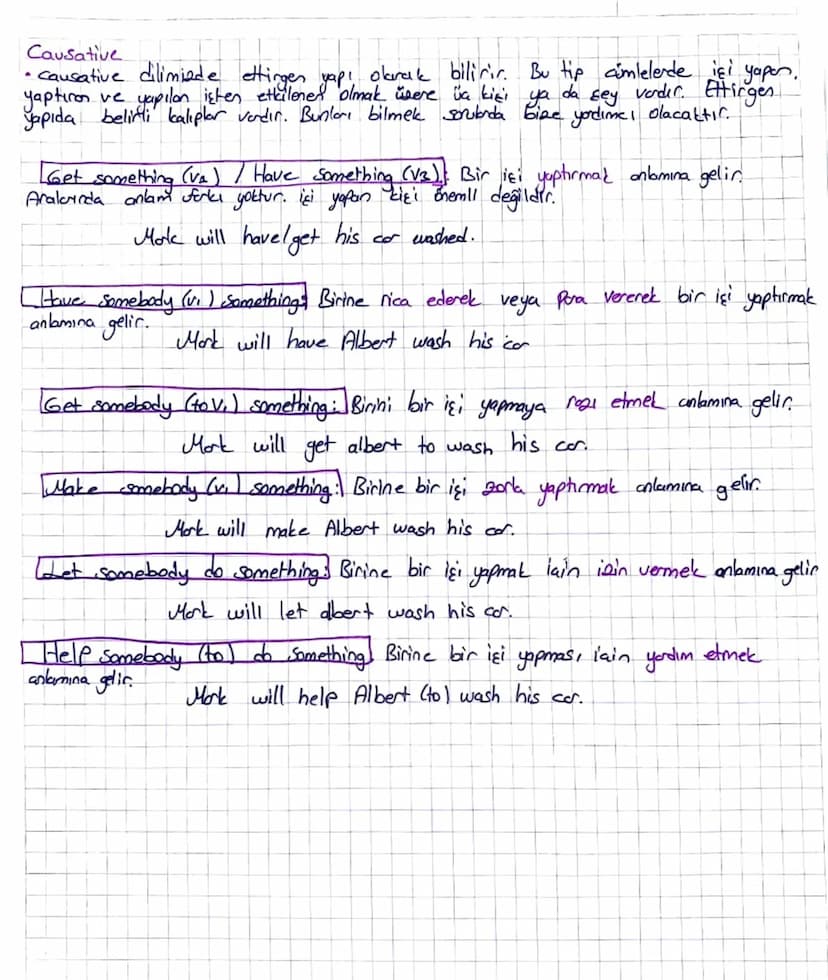 Causative
• Causative dilimizde ettirgen yapı olarak bilinir. Bu tip cümlelerde işi yapan,
yaptıran ve yapılan işten etkilenen olmak üzere üç kişi ya da şey vardır. Ettirgen
yapıda belirli kalıplar vardır. Bunları bilmek sorularda bize yardımcı olacaktır.
Get something (V3) / Have something (V3): Bir işi yaptırmak anlamına gelir.
Aralarında anlam farkı yoktur. işi yapan kişi önemli değildir.
Mark will have/get his car washed.
Have somebody (V1) something: Birine rica ederek veya para vererek bir işi yaptırmak
anlamına gelir.
Mark will have Albert wash his car
Get somebody (to V1) something: Birini bir işi yapmaya razı etmek anlamına gelir.
Mark will get albert to wash his car.
Make somebody (V1) something: Birine bir işi zorla yaptırmak anlamına gelir.
Mark will make Albert wash his car.
Let somebody do something: Birine bir işi yapmak için izin vermek anlamına gelir
Mark will let albert wash his car.
Help somebody (to) do something: Birine bir işi yapması için yardım etmek
anlamına gelir.
Mark will help Albert (to) wash his car.